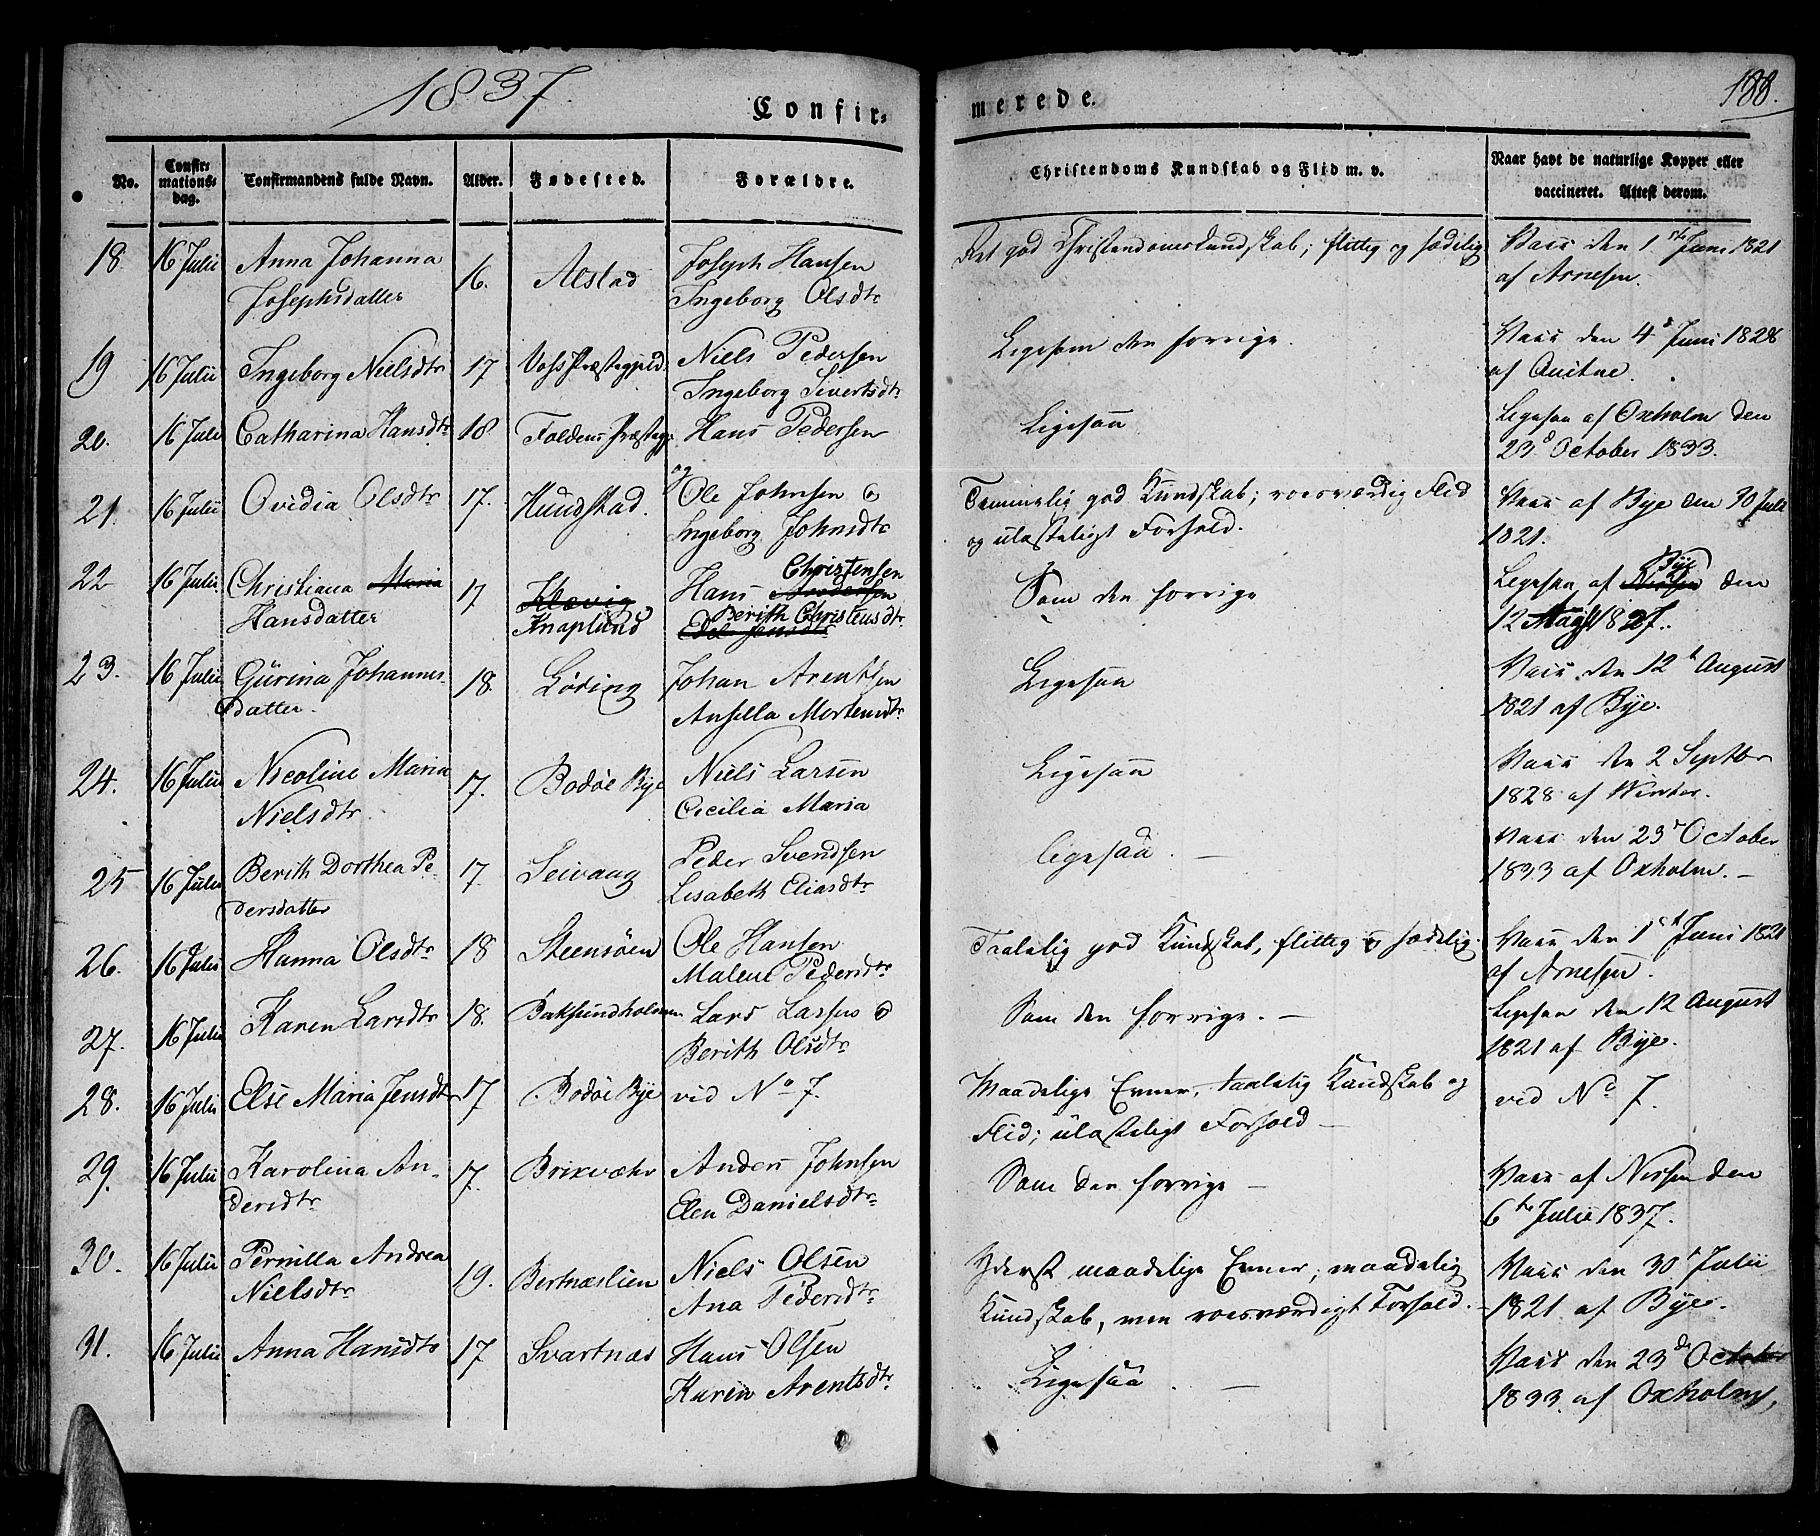 1837.
Confir=
merede.
188.
No.
Confir=
mations=
dag.
Confirmandens fulde Navn.
Alder.
Fødested.
Forældre.
Christendoms Kundskab og Flid m. v.
Naar havt de naturlige Kopper eller
vaccineret. Attest derom.
18 16 Julii Anna Johanna 16. Alstad Joseph Hansen Ret god Christendomskundskab; flittig og sædelig Vacc den 1ste Juni 1821
Josephsdatter Ingeborg Olsdtr af Arnesen.
19 16 Julii Ingeborg Nielsdtr 17 Voss Præstegjeld Niels Pedersen Ligesom den forrige. Vacc den 4d Juni 1828
Ingeborg Sivertsdtr af
20. 16 Julii Catharina Hansdtr 18 Foldens Præstegj. Hans Pedersen Ligesaa Ligesaa af Oxholm den
23d October 1833.
21. 16 Julii Ovidia Olsdtr 17. Hundstad. Ole Johnsen & Temmelig god Kundskab; roesværdig Flid Vacc af Bye den 30 Juli
Ingeborg Johnsdtr og ulasteligt Forhold. 1821.
22 16 Julii Christiana Maria 17 Klævig Hans Andersen Christensen Som den forrige Ligesaa af Nissen Bye den
Hansdatter Knaplund Berith Christensdtr. 12 1827.
Edel Jensdtr
23. 16 Julii Gurina Johannes= 18. Løding Johan Arentsen Ligesaa Vacc. den 12t August
datter. Ansilla Mortensdtr 1821 af Bye.
24. 16 Julii Nicoline Maria 17. Bodøe Bye Niels Larsen Ligesaa Vacc den 2 Septbr
Nielsdtr. Cicilia Maria 1828 af Winter.
25 16 Julii Berith Dorthea Pe= 17. Seivaag Peder Svendsen ligesaa. — Vacc den 23d October
dersdatter Lisabeth Eliasdtr 1833 af Oxholm. —
26. 16 Julii Hanna Olsdtr 18 Steensøen Ole Hansen Taalelig god Kundskab, flittig & sædelig. Vacc den 1st Juni 1821
Malene Pedersdtr af Arnesen.
27. 16 Julii Karen Larsdtr 18. Baksundholmen Lars Lassen & Som den forrige. — Ligesaa den 12 August
Berith Olsdtr 1821 af Bye.
28. 16 Julii Else Maria Jensdtr 17 Bodøe Bye vid No 7. Maadelige Evner, taalelig Kundskab og vid No 7.
Flid; ulasteligt Forhold —
29. 16 Julii Karolina An= 17. Brixvæhr Anders Johnsen Som den forrige — Vacc af Nissen den
dersdtr Elen Danielsdtr. 6te Julii 1837.
30. 16 Julii Pernilla Andrea 19. Bertnæslien Niels Olsen Yderst maadelige Evner; maadelig Vacc den 30t Julii
Nielsdtr Ana Pedersdtr Kundskab, men roesværdigt Forhold. 1821 af Bye.
31. 16 Julii Anna Hansdtr 17 Svartnæs Hans Olsen Ligesaa. — Vacc den 23de October
Karen Arentsdtr 1833. af Oxholm,